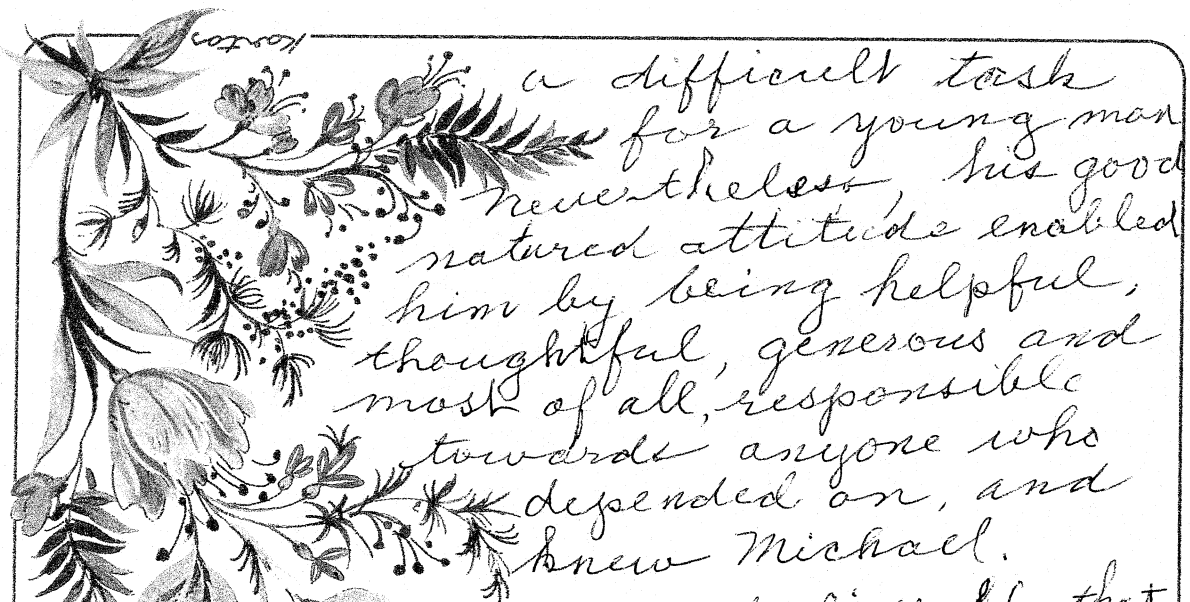 Kartos
a difficult task
for a young man
nevertheless, his good
natured attitude enabled
him by being helpful,
thoughtful, generous and
most of all, responsible
towards anyone who
depended on, and
knew Michael.
that